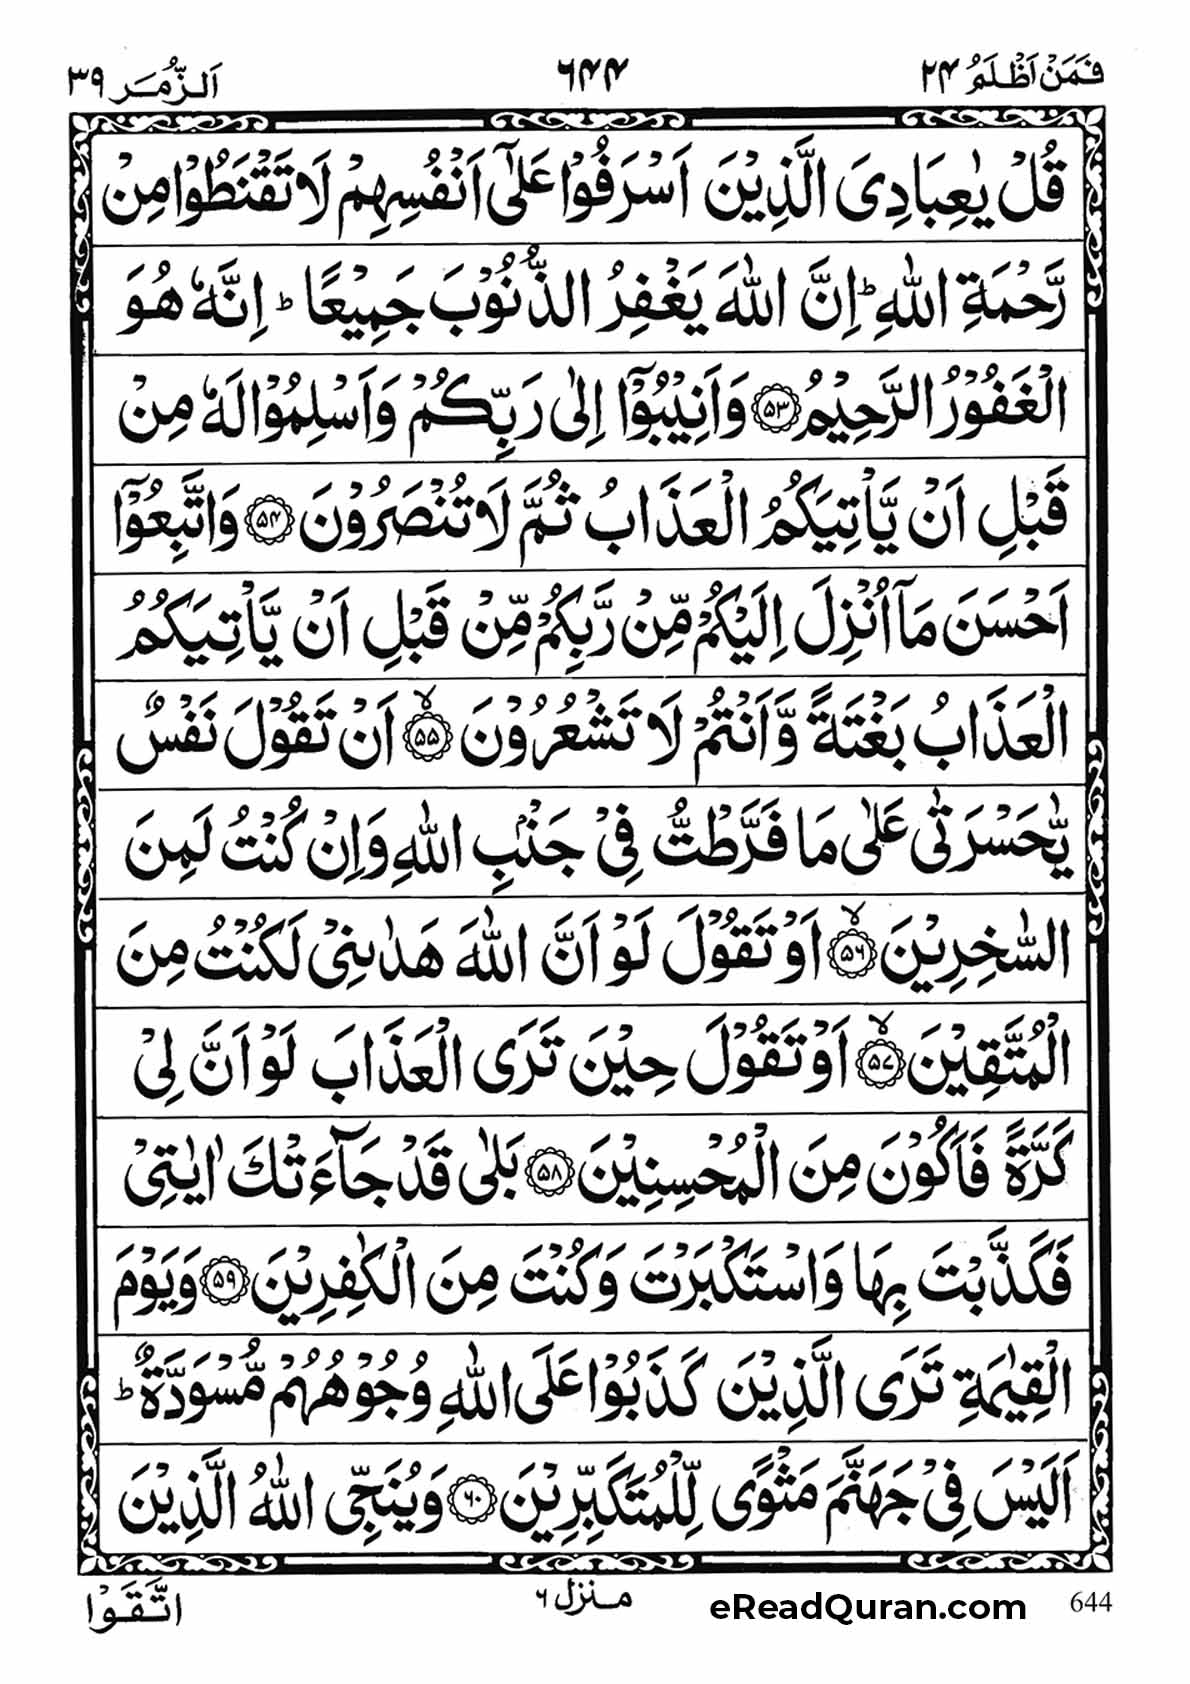 فَمَنْ اَظْلَمُ ۲۴ ۶۴۴ اَلزُّمَر ۳۹
قُلْ يٰعِبَادِىَ الَّذِيْنَ اَسْرَفُوْا عَلٰٓى اَنْفُسِهِمْ لَا تَقْنَطُوْا مِنْ
رَّحْمَةِ اللّٰهِ ؕ اِنَّ اللّٰهَ يَغْفِرُ الذُّنُوْبَ جَمِيْعًا ؕ اِنَّهٗ هُوَ
الْغَفُوْرُ الرَّحِيْمُ ﴿۵۳﴾ وَاَنِيْبُوْۤا اِلٰى رَبِّكُمْ وَاَسْلِمُوْا لَهٗ مِنْ
قَبْلِ اَنْ يَّاْتِيَكُمُ الْعَذَابُ ثُمَّ لَا تُنْصَرُوْنَ ﴿۵۴﴾ وَاتَّبِعُوْۤا
اَحْسَنَ مَاۤ اُنْزِلَ اِلَيْكُمْ مِّنْ رَّبِّكُمْ مِّنْ قَبْلِ اَنْ يَّاْتِيَكُمُ
الْعَذَابُ بَغْتَةً وَّاَنْتُمْ لَا تَشْعُرُوْنَ ۙ﴿۵۵﴾ اَنْ تَقُوْلَ نَفْسٌ
يّٰحَسْرَتٰى عَلٰى مَا فَرَّطْتُّ فِىْ جَنْۢبِ اللّٰهِ وَاِنْ كُنْتُ لَمِنَ
السّٰخِرِيْنَ ۙ﴿۵۶﴾ اَوْ تَقُوْلَ لَوْ اَنَّ اللّٰهَ هَدٰىنِىْ لَكُنْتُ مِنَ
الْمُتَّقِيْنَ ۙ﴿۵۷﴾ اَوْ تَقُوْلَ حِيْنَ تَرَى الْعَذَابَ لَوْ اَنَّ لِىْ
كَرَّةً فَاَكُوْنَ مِنَ الْمُحْسِنِيْنَ ﴿۵۸﴾ بَلٰى قَدْ جَآءَتْكَ اٰيٰتِىْ
فَكَذَّبْتَ بِهَا وَاسْتَكْبَرْتَ وَكُنْتَ مِنَ الْكٰفِرِيْنَ ﴿۵۹﴾ وَيَوْمَ
الْقِيٰمَةِ تَرَى الَّذِيْنَ كَذَبُوْا عَلَى اللّٰهِ وُجُوْهُهُمْ مُّسْوَدَّةٌ ؕ
اَلَيْسَ فِىْ جَهَنَّمَ مَثْوًى لِّلْمُتَكَبِّرِيْنَ ﴿۶۰﴾ وَيُنَجِّى اللّٰهُ الَّذِيْنَ
اتَّقَوْا منزل ۶ eReadQuran.com 644